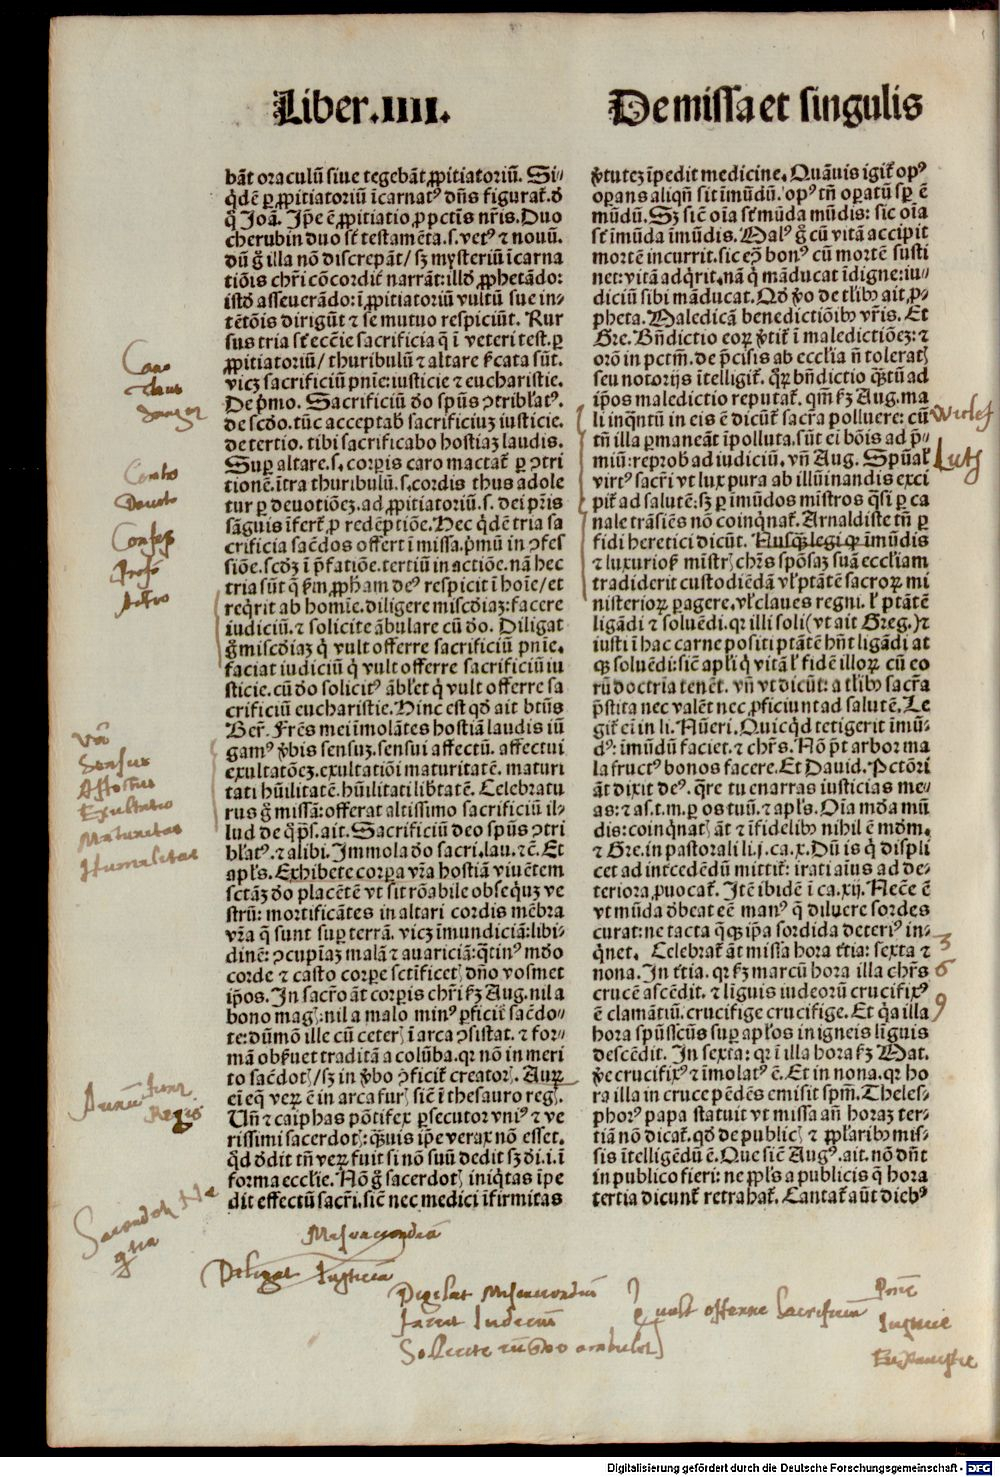 Liber.IIII.
De missa et singulis
bāt oraculū siue tegebāt ꝓpitiatoriū. Si⸗
q̇dē ꝑ ꝓpitiatoriū īcarnatꝰ dn̄s figurat̄. ꝺ̄
q̇ Joā. Ip̄e ē ꝓpitiatio ꝓ pctīs nr̄is. Duo
cherubin duo st̄ testamēta. s. vetꝰ ⁊ nouū.
dū g̊ illa nō discrepāt/ sꝫ mysteriū īcarna
tiōis chr̄i cōcordit̄ narrāt: illd̄ ꝓphetādo:
istd̄ asseuerādo: ī ꝓpitiatoriū vultū sue in⸗
tētōis dirigūt ⁊ se mutuo respiciūt. Rur
sus tria st̄ eccl̄ie sacrificia q̄ ī veteri test. ꝑ
ꝓpitiatoriū/ thuribulū ⁊ altare p̄cata sūt.
vicꝫ sacrificiū pnīe: iusticie ⁊ eucharistie.
De p̄mo. Sacrificiū ꝺo spūs ꝯtribl̄atꝰ.
de scd̄o. tūc acceptab̄ sacrificiuꝫ iusticie.
de tertio. tibi sacrificabo hostiaꝫ laudis.
Suꝑ altare. s. corꝑis caro mactat̄ ꝑ ꝯtri
tionē. ītra thuribulū. s. cordis thus adole
tur ꝑ deuotiōeꝫ. ad ꝓpitiatoriū. s. dei pr̄is
sāguis īfert̄ ꝓ redēptiōe. Hec q̇dē tria sa
crificia sac̄dos offert ī missa. p̄mū in ꝯfes
siōe. scd̄ꝫ ī p̄fatiōe. tertiū in actiōe. nā hec
tria sūt q̄ ẜm ꝓpham deꝰ respicit ī hoīe/ et
req̇rit ab homīe. diligere misc̄diaꝫ: facere
iudiciū. ⁊ solicite ābulare cū ꝺo. Diligat
g̊ misc̄diaꝫ q̇ vult offerre sacrificiū pnīe.
faciat iudiciū q̇ vult offerre sacrificiū iu
sticie. cū ꝺo solicitꝰ ābl̄et q̇ vult offerre sa
crificiū eucharistie. Hinc est qd̄ ait btūs
Ber̄. Fr̄es mei īmolātes hostiā laudis iū
gamꝰ v̄bis sensuꝫ. sensui affectū. affectui
exultatōeꝫ. exultatiōi maturitatē. maturi
tati hūilitatē. hūilitati lib̄tatē. Celebratu
rus g̊ missā: offerat altissimo sacrificiū il⸗
lud de q̊ p̄s. ait. Sacrificiū deo spūs ꝯtri
bl̄atꝰ. ⁊ alibi. Immola ꝺo sacri. lau. ⁊c̄. Et
apl̄s. Exhibete corꝑa vr̄a hostiā viuētem
sctāꝫ ꝺo placētē vt sit rōabile obseq̇uꝫ ve
strū: mortificātes in altari cordis mēbra
vr̄a q̄ sunt suꝑ terrā. vicꝫ īmundiciā: libi⸗
dinē: ꝯcupīaꝫ malā ⁊ auariciā: q̄tinꝰ mūdo
corde ⁊ casto corꝑe sctīficetꝭ dn̄o vosmet
ip̄os. In sacr̄o āt corꝑis chr̄i ẜꝫ Aug. nil a
bono magꝭ: nil a malo minꝰ ꝑficit̄ sac̄do⸗
te: dūmō ille cū ceterꝭ ī arca ꝯsistat. ⁊ for⸗
mā obẜuet traditā a colūba. qꝛ nō in meri
to sac̄dotꝭ/ sꝫ in v̄bo ꝯficit̄ creatorꝭ. Auꝝ
ei eq̄ veꝝ ē in arca furꝭ sic̄ ī thesauro regꝭ.
Un̄ ⁊ caiphas pōtifex ꝑsecutor vniꝰ ⁊ ve
rissimi sacerdotꝭ: q̄uis ip̄e verax nō esset.
qd̄ ꝺdit tn̄ veꝝ fuit si nō suū dedit sꝫ ꝺi. i. ī
forma eccl̄ie. Nō g̊ sacerdotꝭ iniq̇tas īpe
dit effectū sacr̄i. sic̄ nec medici īfirmitas
v̄tuteꝫ īpedit medicine. Quāuis igit̄ opꝰ
oꝑans aliqn̄ sit īmūdū. opꝰ tn̄ oꝑatū sꝑ ē
mūdū. Sꝫ sic̄ oīa st̄ mūda mūdis: sic oīa
st̄ īmūda īmūdis. Malꝰ g̊ cū vitā accipit
mortē incurrit. sic eꝯ̄ bonꝰ cū mortē susti
net: vitā adq̇rit. nā q̇ māducat īdigne: iu⸗
diciū sibi māducat. Qd̄ v̄o de tl̄ibꝰ ait ꝓ⸗
pheta. Maledicā benedictiōibꝰ vr̄is. Et
Gre. Bn̄dictio eoꝝ v̄tit̄ ī maledictiōeꝫ: ⁊
orō in pctm̄. de p̄cisis ab eccl̄ia n̄ toleratꝭ
seu notorijs ītelligit̄. q̊ꝝ bn̄dictio q̄tū ad
ip̄os maledictio reputat̄. qm̄ ẜꝫ Aug. ma
li inq̄ntū in eis ē dicūt̄ sacr̄a polluere: cū
tn̄ illa ꝑmaneāt īpolluta. sūt ei bōis ad p̄⸗
miū: reprob̄ ad iudiciū. vn̄ Aug. Spūal̄
virtꝰ sacr̄i vt lux pura ab illūinandis exci
pit̄ ad salutē: sꝫ ꝑ īmūdos mīstros q̄si ꝑ ca
nale trāsiēs nō coinq̇nat̄. Arnaldiste tn̄ ꝑ
fidi heretici dicūt. Nusq̄ legi qꝙ īmūdis
⁊ luxurioẜ mīstrꝭ chr̄s spōsaꝫ suā eccl̄iam
tradiderit custodiēdā vl̄ ptātē sacroꝝ mi
nisterioꝝ ꝑagere. vl̄ claues regni. l̄ ptātē
ligādi ⁊ soluēdi. qꝛ illi soli (vt ait Greg.) ⁊
iusti ī hac carne positi ptātē hn̄t ligādi at
qꝫ soluēdi: sic̄ apl̄i q̇ vitā l̄ fidē illoꝝ cū eo
rū doctrīa tenēt. vn̄ vt dicūt: a tl̄ibꝰ sacr̄a
p̄stita nec valēt nec ꝓficiunt ad salutē. Le
git̄ ei in li. Nūeri. Quicq̇d tetigerit īmū⸗
dꝰ: īmūdū faciet. ⁊ chr̄s. Nō p̄t arboꝛ ma
la fructꝰ bonos facere. Et Dauid. Pctōri
āt dixit deꝰ. q̄re tu enarras iusticias me⸗
as: ⁊ as. t. m. ꝑ os tuū. ⁊ apl̄s. Oīa mūda mū
dis: coinq̇natꝭ āt ⁊ īfidelibꝰ nihil ē mūdm̄.
⁊ Gre. in pastorali li. j. ca. x. Dū is q̇ displi
cet ad intcedēdū mittit̄: irati aīus ad de⸗
teriora ꝓuocat̄. Itē ibidē ī ca. xij. Nec̄e ē
vt mūda ꝺbeat eē manꝰ q̄ diluere sordes
curat: ne tacta q̄qꝫ ip̄a sordida deteriꝰ in⸗
q̇net. Celebrat̄ āt missa hora t̄tia: sexta ⁊
nona. In t̄tia. qꝛ ẜꝫ marcū hora illa chr̄s
crucē ascēdit. ⁊ līguis iudeorū crucifixꝰ
ē clamātiū. crucifige crucifige. Et q̇a illa
hora spūsscūs suꝑ apl̄os in igneis līguis
descēdit. In sexta: qꝛ ī illa hora ẜꝫ Mat.
v̄e crucifixꝰ ⁊ īmolatꝰ ē. Et in nona. qꝛ ho
ra illa in cruce pēdēs emisit spm̄. Theles⸗
phorꝰ papa statuit vt missa añ horaꝫ ter⸗
tiā nō dicat̄. qd̄ de publicꝭ ⁊ ꝓpl̄aribꝰ mis⸗
sis ītelligēdū ē. Que sic̄ Augꝰ. ait. nō dn̄t
in publico fieri: ne ꝓpl̄s a publicis q̄ hora
tertia dicunt̄ retrahat̄. Cantat̄ aūt diebꝰ
Caro
Thus
Sanguis
Contritio
Devotio
Confessio
Prefatio
Actio
Verba
Sensus
Affectus
Exultatio
Maturitas
Humilitas
Aurum Furis
Regis
Wiclef
Luth
3
6
9
Misericordia
Diligat Justicia
Diligat Misericordiam
faciat Iudicium
Solicite cum deo ambulet
q vult offerre sacrificium
Pnīe
Iusticie
Eucharistie
Digitalisierung gefördert durch die Deutsche Forschungsgemeinschaft - DFG